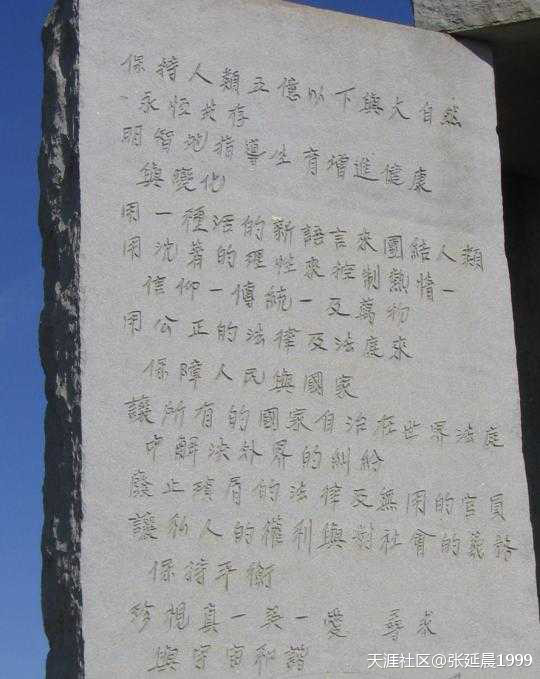 保持人類五億以下與大自然
永恆共存
明智地指導生育增進健康
與變化
用一種活的新語言來團結人類
用沈著的理性來控制熱情一
信仰一傳統一及萬物
用公正的法律及法庭來
保障人民與國家
讓所有的國家自治在世界法庭
中解決外界的糾紛
廢止瑣屑的法律及無用的官員
讓私人的權利與對社會的義務
保持平衡
珍視真一美一愛 尋求
與宇宙和諧
天涯社区@张延晨1999